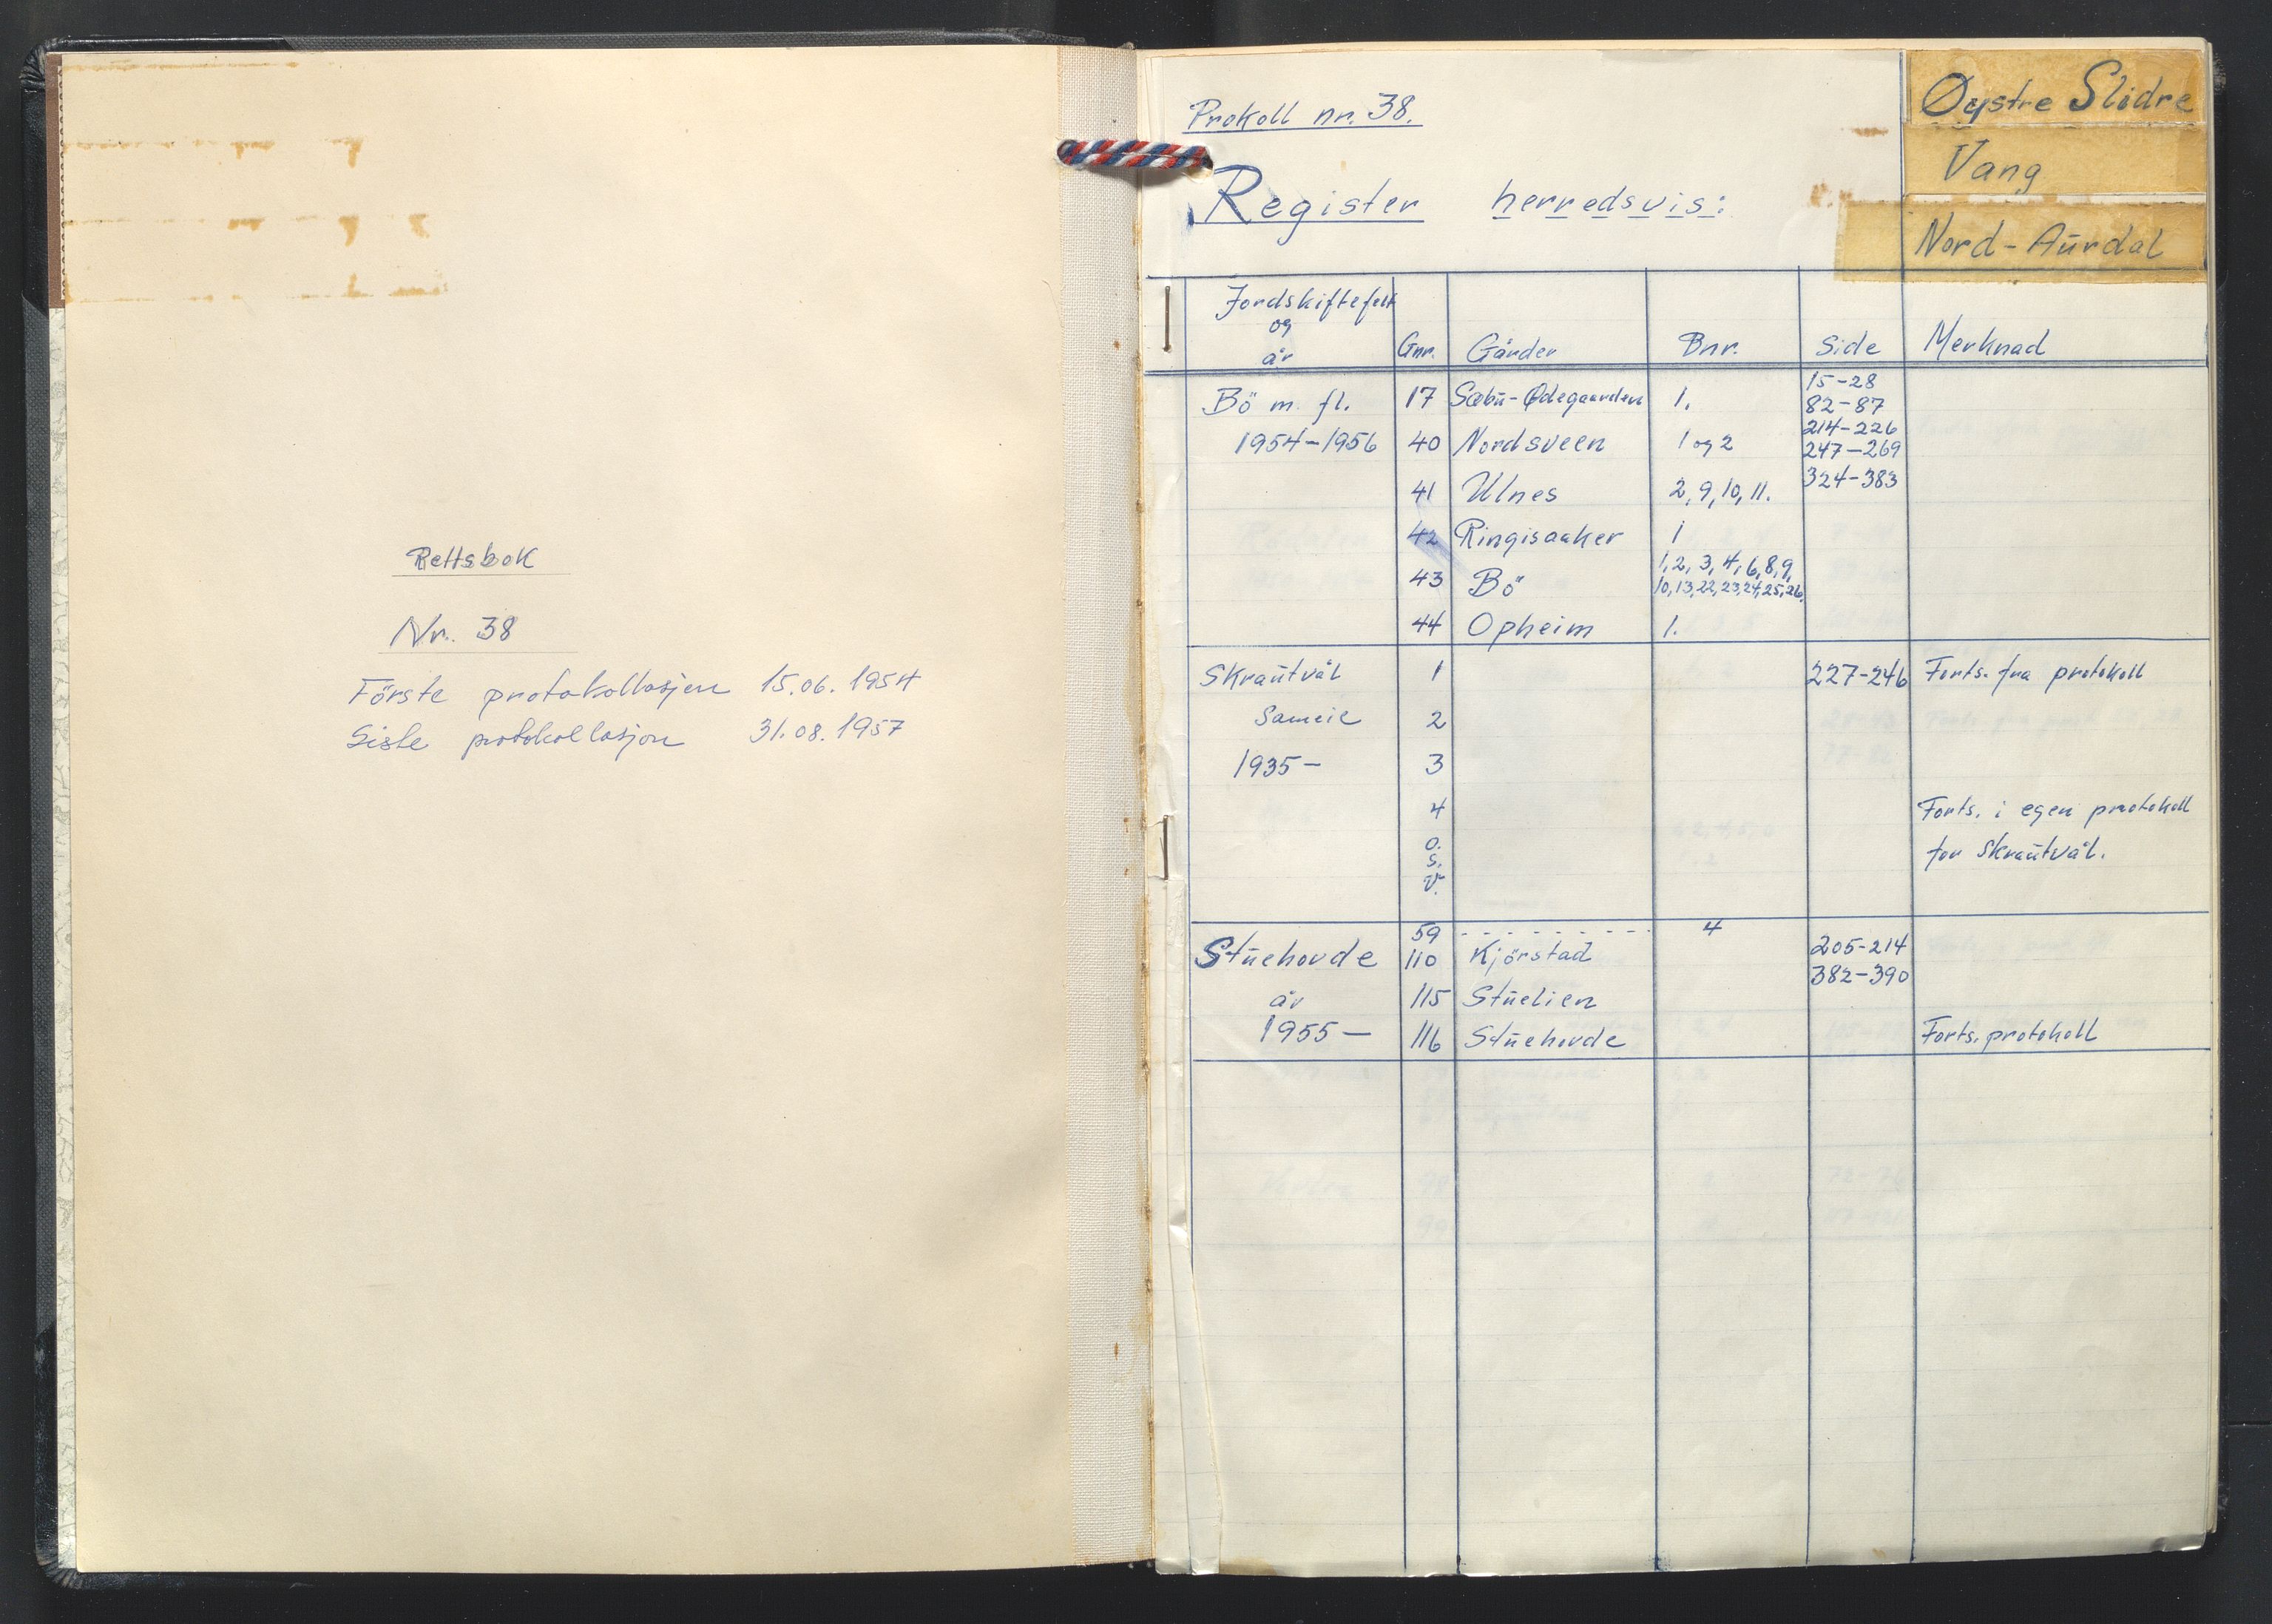 Rettsbok
Nr. 38
Förste protokollasjon 15.06.1954
Siste protokollasjon 31.08.1957
Prokoll nr. 38.
Register herredsvis:
Øystre Slidre
Vang
Nord-Aŭrdal
Jordskiftefelt
og
år Gnr. Gårder Bnr. Side Merknad
Bö m. fl. 17 Sæbŭ-Ødegaarden 1. 15-28
82-87
1954-1956 40 Nordsveen 1 og 2 214-226
247-269
41 Ulnes 2, 9, 10, 11. 324-383
42 Ringisaaker 1
43 Bö 1, 2, 3, 4, 6, 8, 9,
10, 13, 22, 23, 24, 25, 26.
44 Opheim 1.
Skraŭtvål 1 227-246 Forts. fra protokoll
Sameie 2
1935- 3
4 Forts. i egen protokoll
o. for Skraŭtvål.
s.
v.
59 - - - - - - - - - 4
Stŭehovde 110 Kjörstad 205-214
382-390
år 115 Stŭelien
1955- 116 Stŭehovde Forts. protokoll